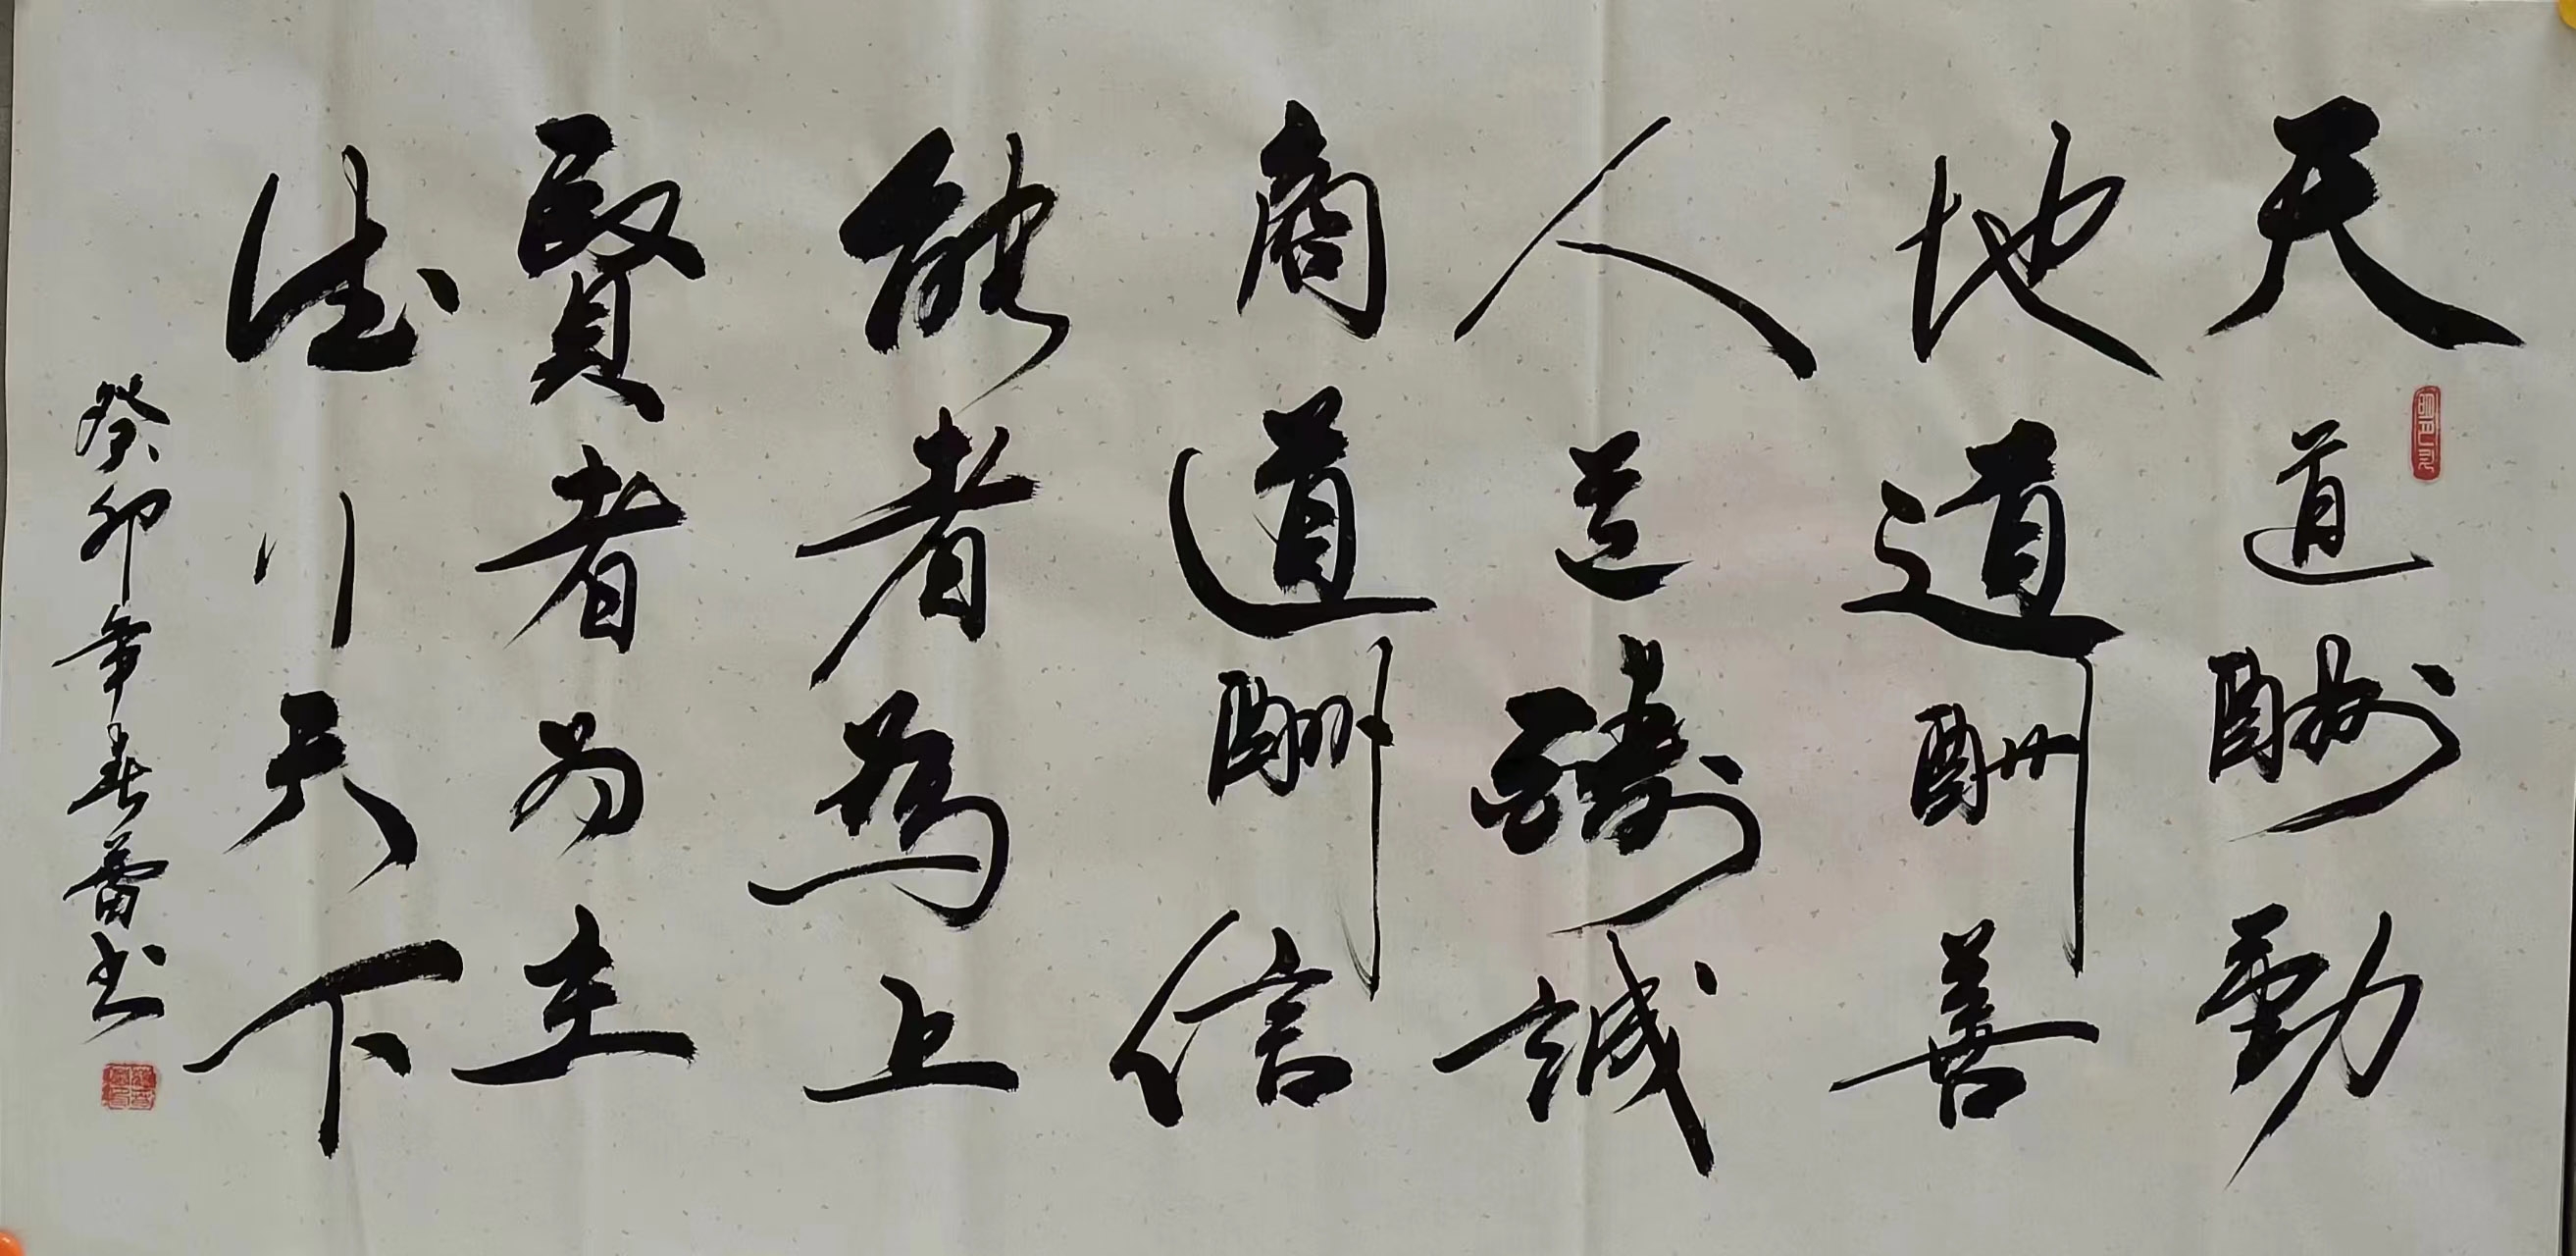 天道酬勤
地道酬善
人道酬誠
商道酬信
能者為上
賢者為主
德行天下
癸卯年春蕾书